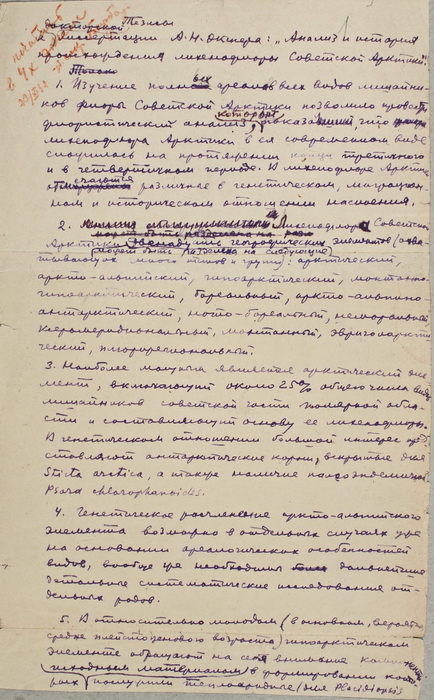 Тезисы
докторской
к диссертации А.Н. Окснера: „Анализ и история
происхождения лихенофлоры Советской Арктики".
1. Изучение ареалов всех видов лишайни-
ков флоры Советской Арктики позволило провести
флористический анализ, который показал, что
лихенофлора Арктики в ея современном виде
сложилась на протяжении конца третичного
и в четвертичном периоде. В лихенофлоре Арктики
различные в генетическом, миграцион-
ном и историческом отношении наслоения.
2. Лихенофлора Советской
Арктики
может быть разделена на следующие
двенадцать географических элементов
типов и групп: арктический,
аркто-альпийский, гипоарктический, монтанно-
гипоарктический, бореальный, аркто-альпино-
антарктический, ното-бореальный, неморальный
ксеромеридиональный, монтанный, эвриголаркти-
ческий, плюрирегиональный.
3. Наиболее мощным является арктический эле-
мент, включающий около 25% общего числа видов
лишайников советской части полярной обла-
сти и составляющий основу ее лихенофлоры.
В генетическом отношении большой интерес пред-
ставляют антарктические корни, вскрытые для
Sticta arctica, а также наличие палеоэндемичной
Psora chlorophanoides.
4. Генетическое расчленение аркто-альпийского
элемента возможно в отдельных случаях уже
на основании ареалогических особенностей
видов, вообще же необходимы дальнейшие
детальные систематические исследования от-
дельных родов.
5. В относительно молодом (в основном, вероятно
средне плейстоценового возраста) гипоарктическом
элементе обращают на себя внимание
исходным материалом в формировании кото-
рых послужили теплолюбивые (для Placidiopsis